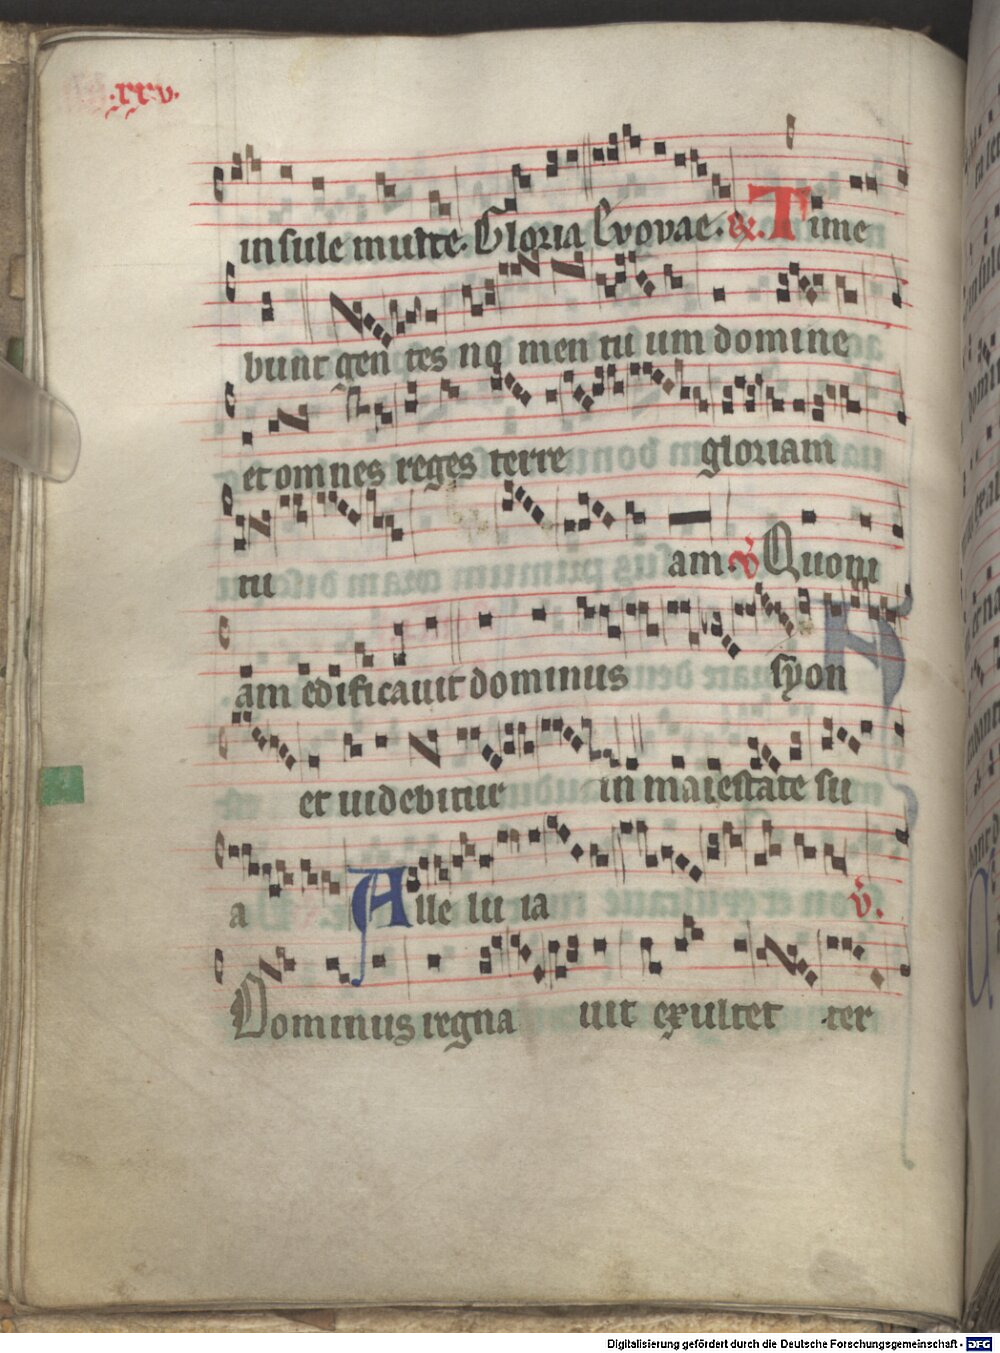 .xxv.
insule multe. Gloria Evovae. R. Time
bunt gen tes no men tu um domine
et omnes reges terre gloriam
tu am. V Quoni
am edificauit dominus syon
et uidebitur in maiestate su
a Alle lu ia V.
Dominus regna uit exultet ter
Digitalisierung gefördert durch die Deutsche Forschungsgemeinschaft - DFG